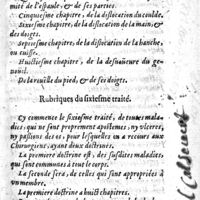 mité de l'espaule, & de ses parties.
Cinquiesme chapitre, de la dislocation du coulde.
Sixiesme chapitre, de la dislocation de la main, &
des doigts.
Septiesme chapitre, de la dislocation de la hanche,
ou cuisse.
Huictiesme chapitre, de la desnoüeure du ge-
nouil.
De la cuille du pied, & de ses doigts.
Rubriques du sixiesme traité.
Cy commence le sixiesme traité, de toutes mala-
dies, qui ne sont proprement apostemes, ny vlceres,
ny passions des os, pour lesquelles on a recours aux
Chirurgiens, ayant deux doctrines.
La premiere doctrine est, des susdites maladies,
qui sont communes à tout le corps.
La seconde sera, de celles qui sont appropriées à
vn membre.
La premiere doctrine a huict chapitres.